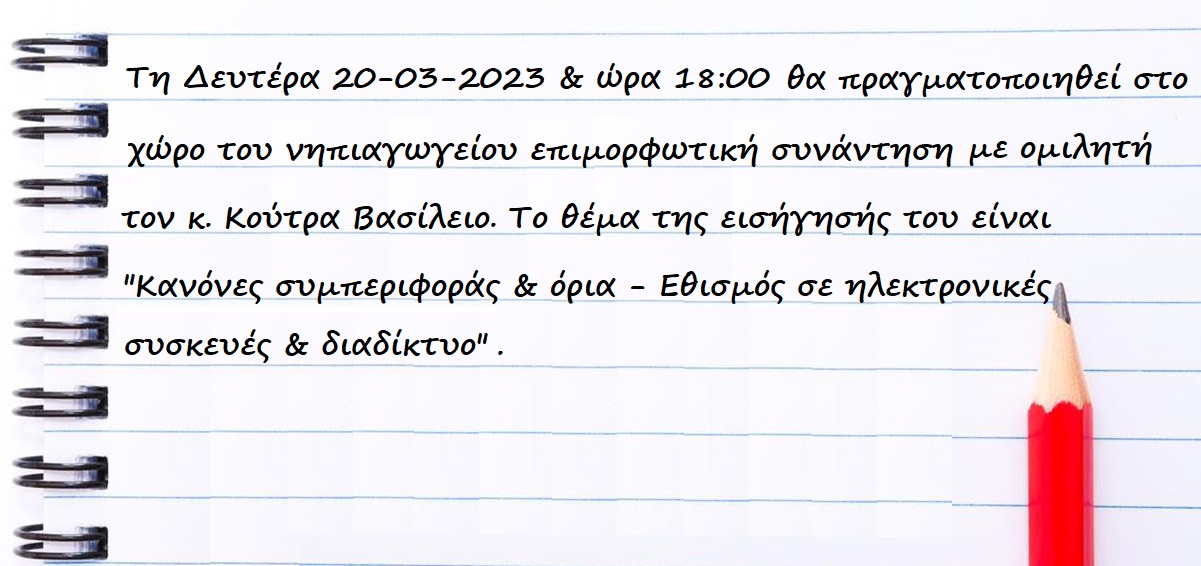 Τη Δευτέρα 20-03-2023 & ώρα 18:00 θα πραγματοποιηθεί στο
χώρο του νηπιαγωγείου επιμορφωτική συνάντηση με ομιλητή
τον κ. Κούτρα Βασίλειο. Το θέμα της εισήγησής του είναι
"Κανόνες συμπεριφοράς & όρια - Εθισμός σε ηλεκτρονικές
συσκευές & διαδίκτυο" .